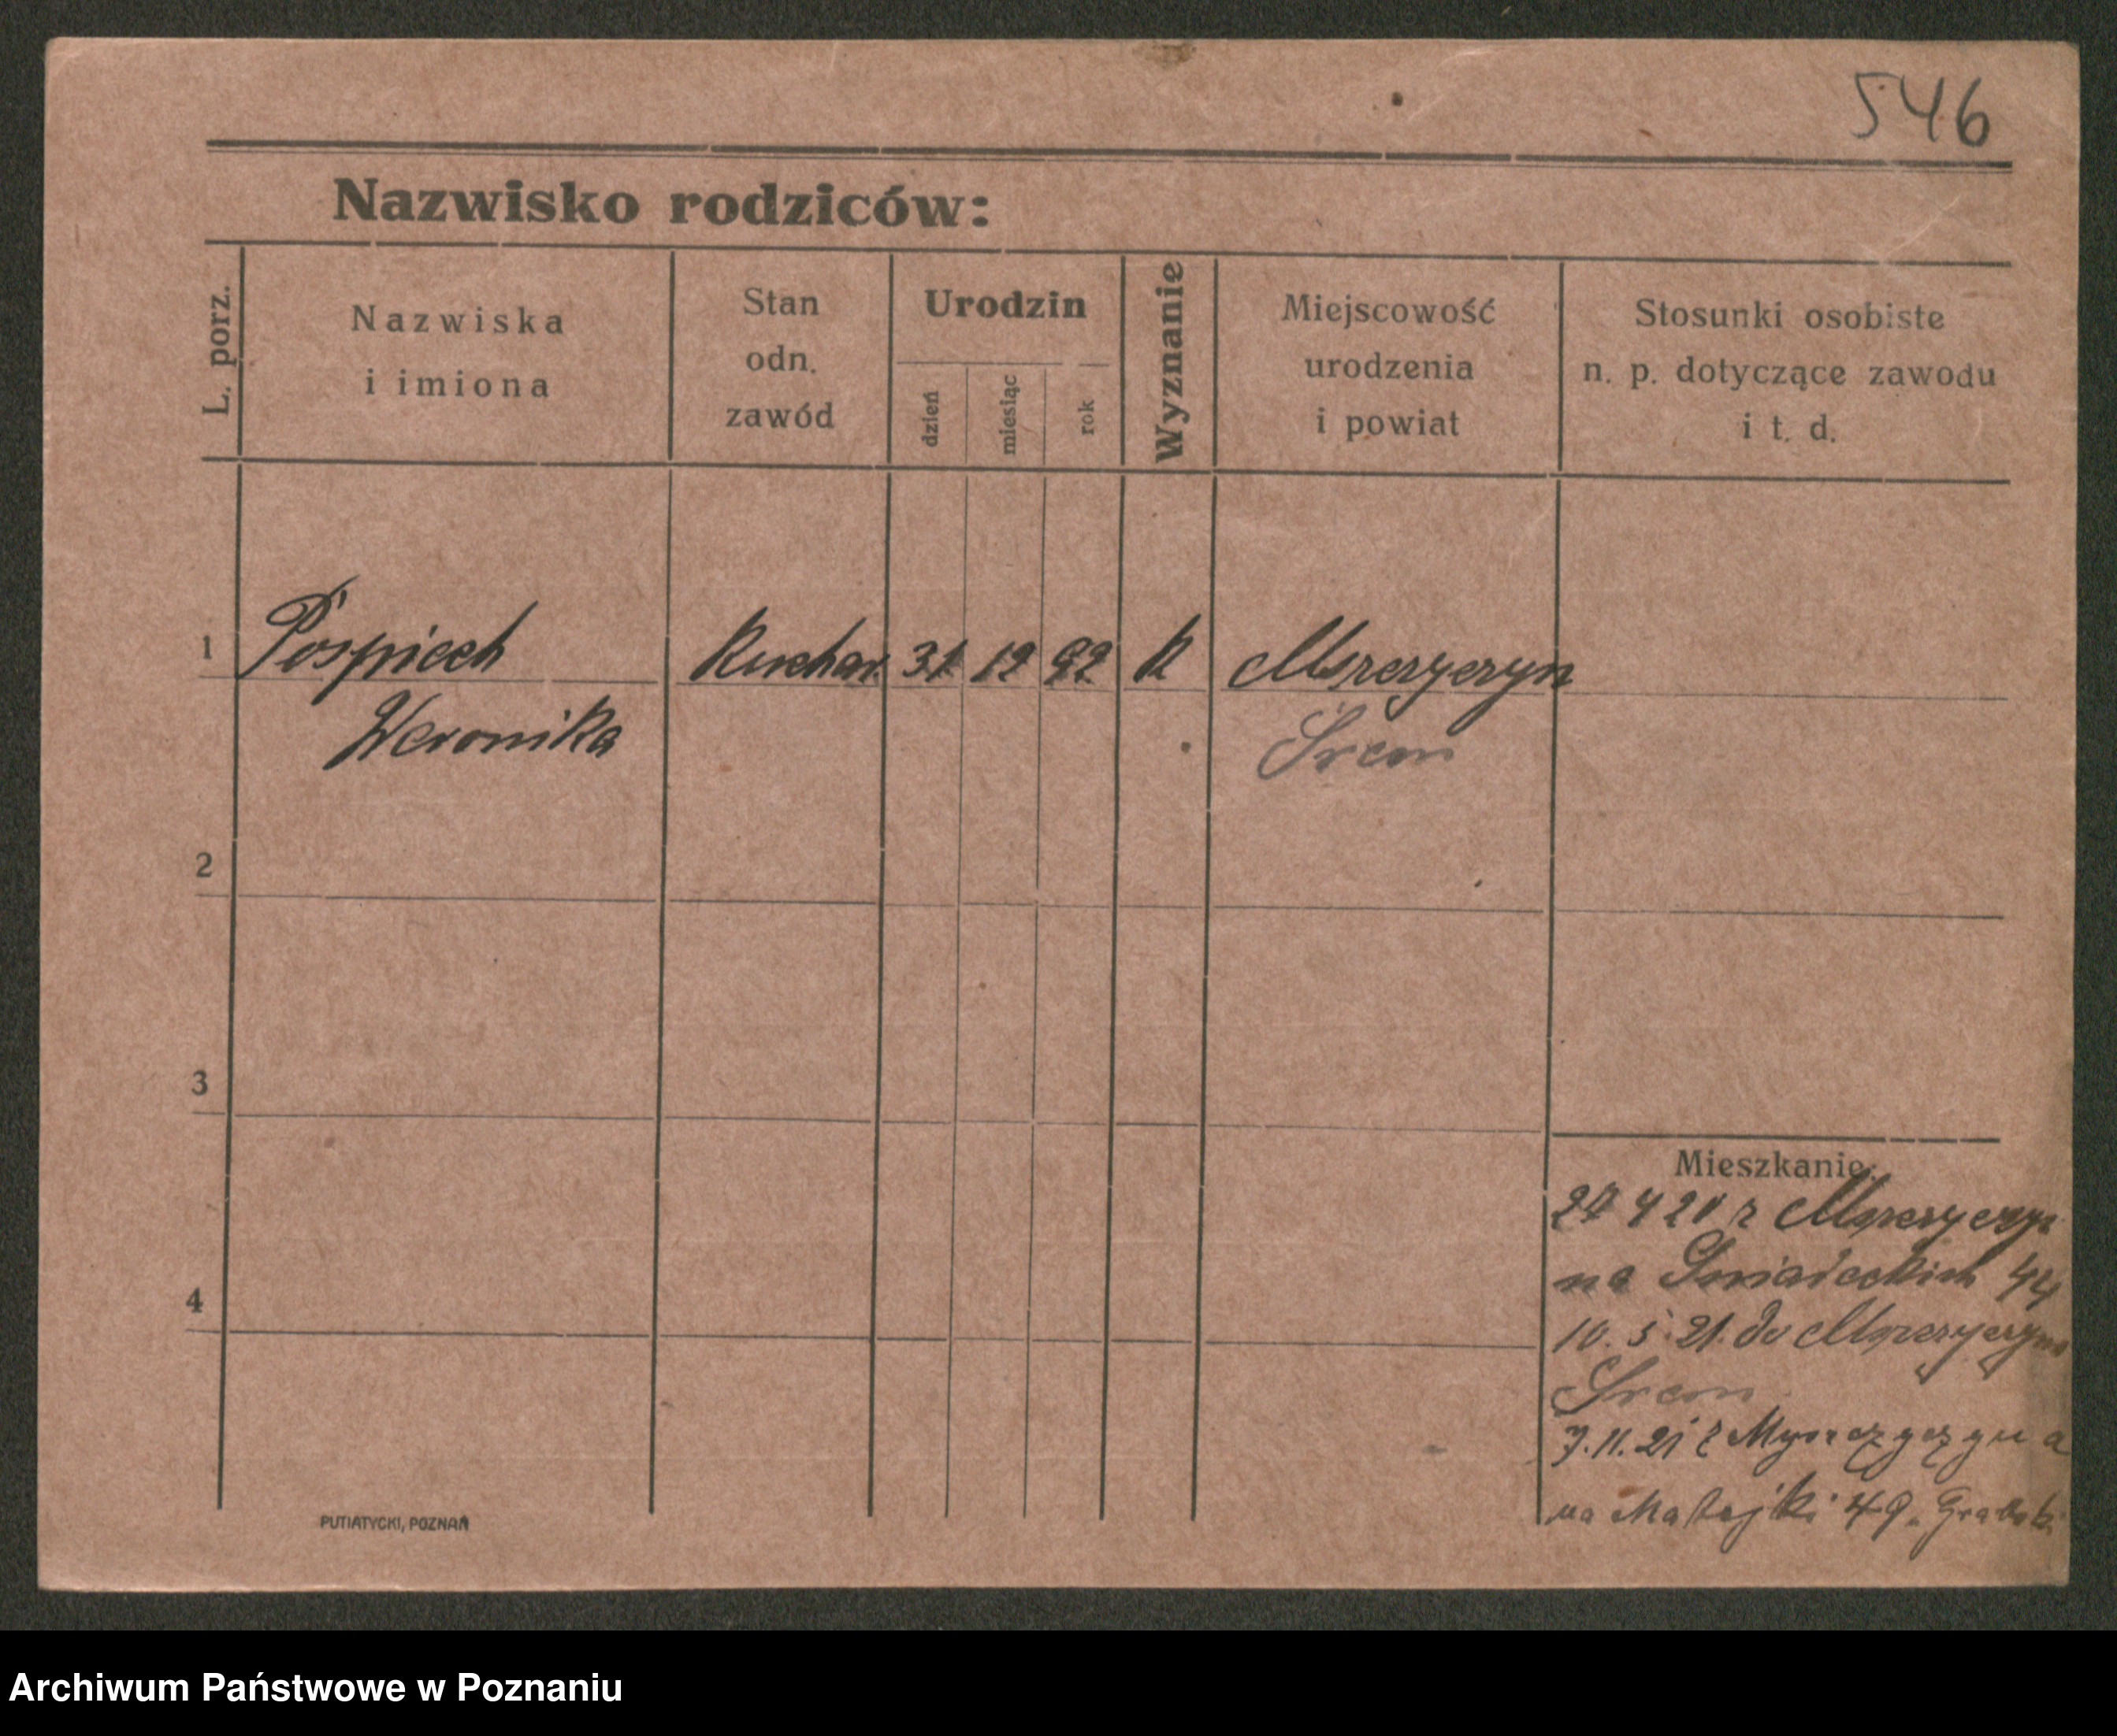 546
Nazwisko rodziców:
L. porz.
Nazwiska
i imiona
Stan
odn.
zawód
Urodzin
dzień
miesiąc
rok
Wyznanie
Miejscowość
urodzenia
i powiat
Stosunki osobiste
n. p. dotyczące zawodu
i t. d.
1 Pospiech Kuchar. 31 12 92 k Mszczyczyn
Weronika Śrem
2
3
4
Mieszkanie:
27 4 21 z Mszczyczyn
na Śniadeckich 44
10. 5 21. do Mszczyczyna
Śrem
7. 11. 21 z
na Matejki 49.
PUTIATYCKI, POZNAŃ
Archiwum Państwowe w Poznaniu